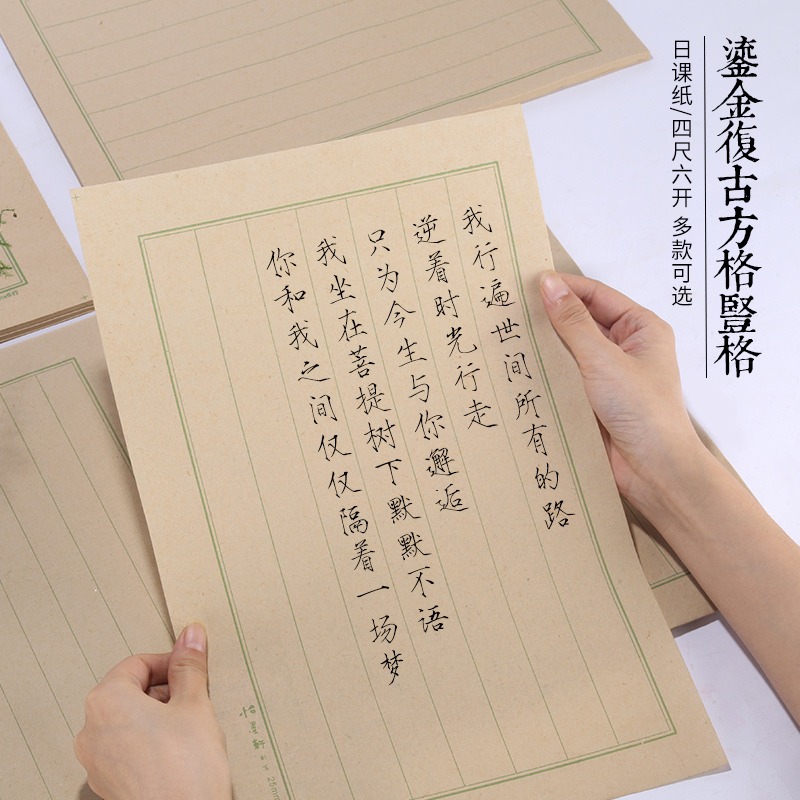 鎏金復古方格豎格
日课纸/四尺六开 多款可选
我行遍世间所有的路
逆着时光行走
只为今生与你邂逅
我坐在菩提树下默默不语
你和我之间仅仅隔着一场梦
怡墨軒
25mm